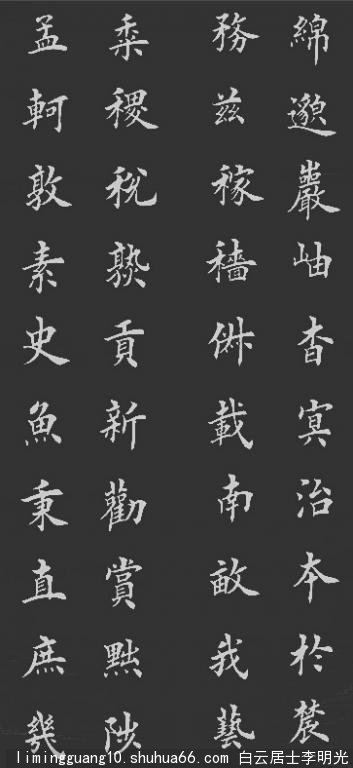 綿邈巖岫杳冥治本於農
務茲稼穡俶載南畝我藝
黍稷稅熟貢新勸賞黜陟
孟軻敦素史魚秉直庶幾
limingguang10.shuhua66.com 白云居士李明光